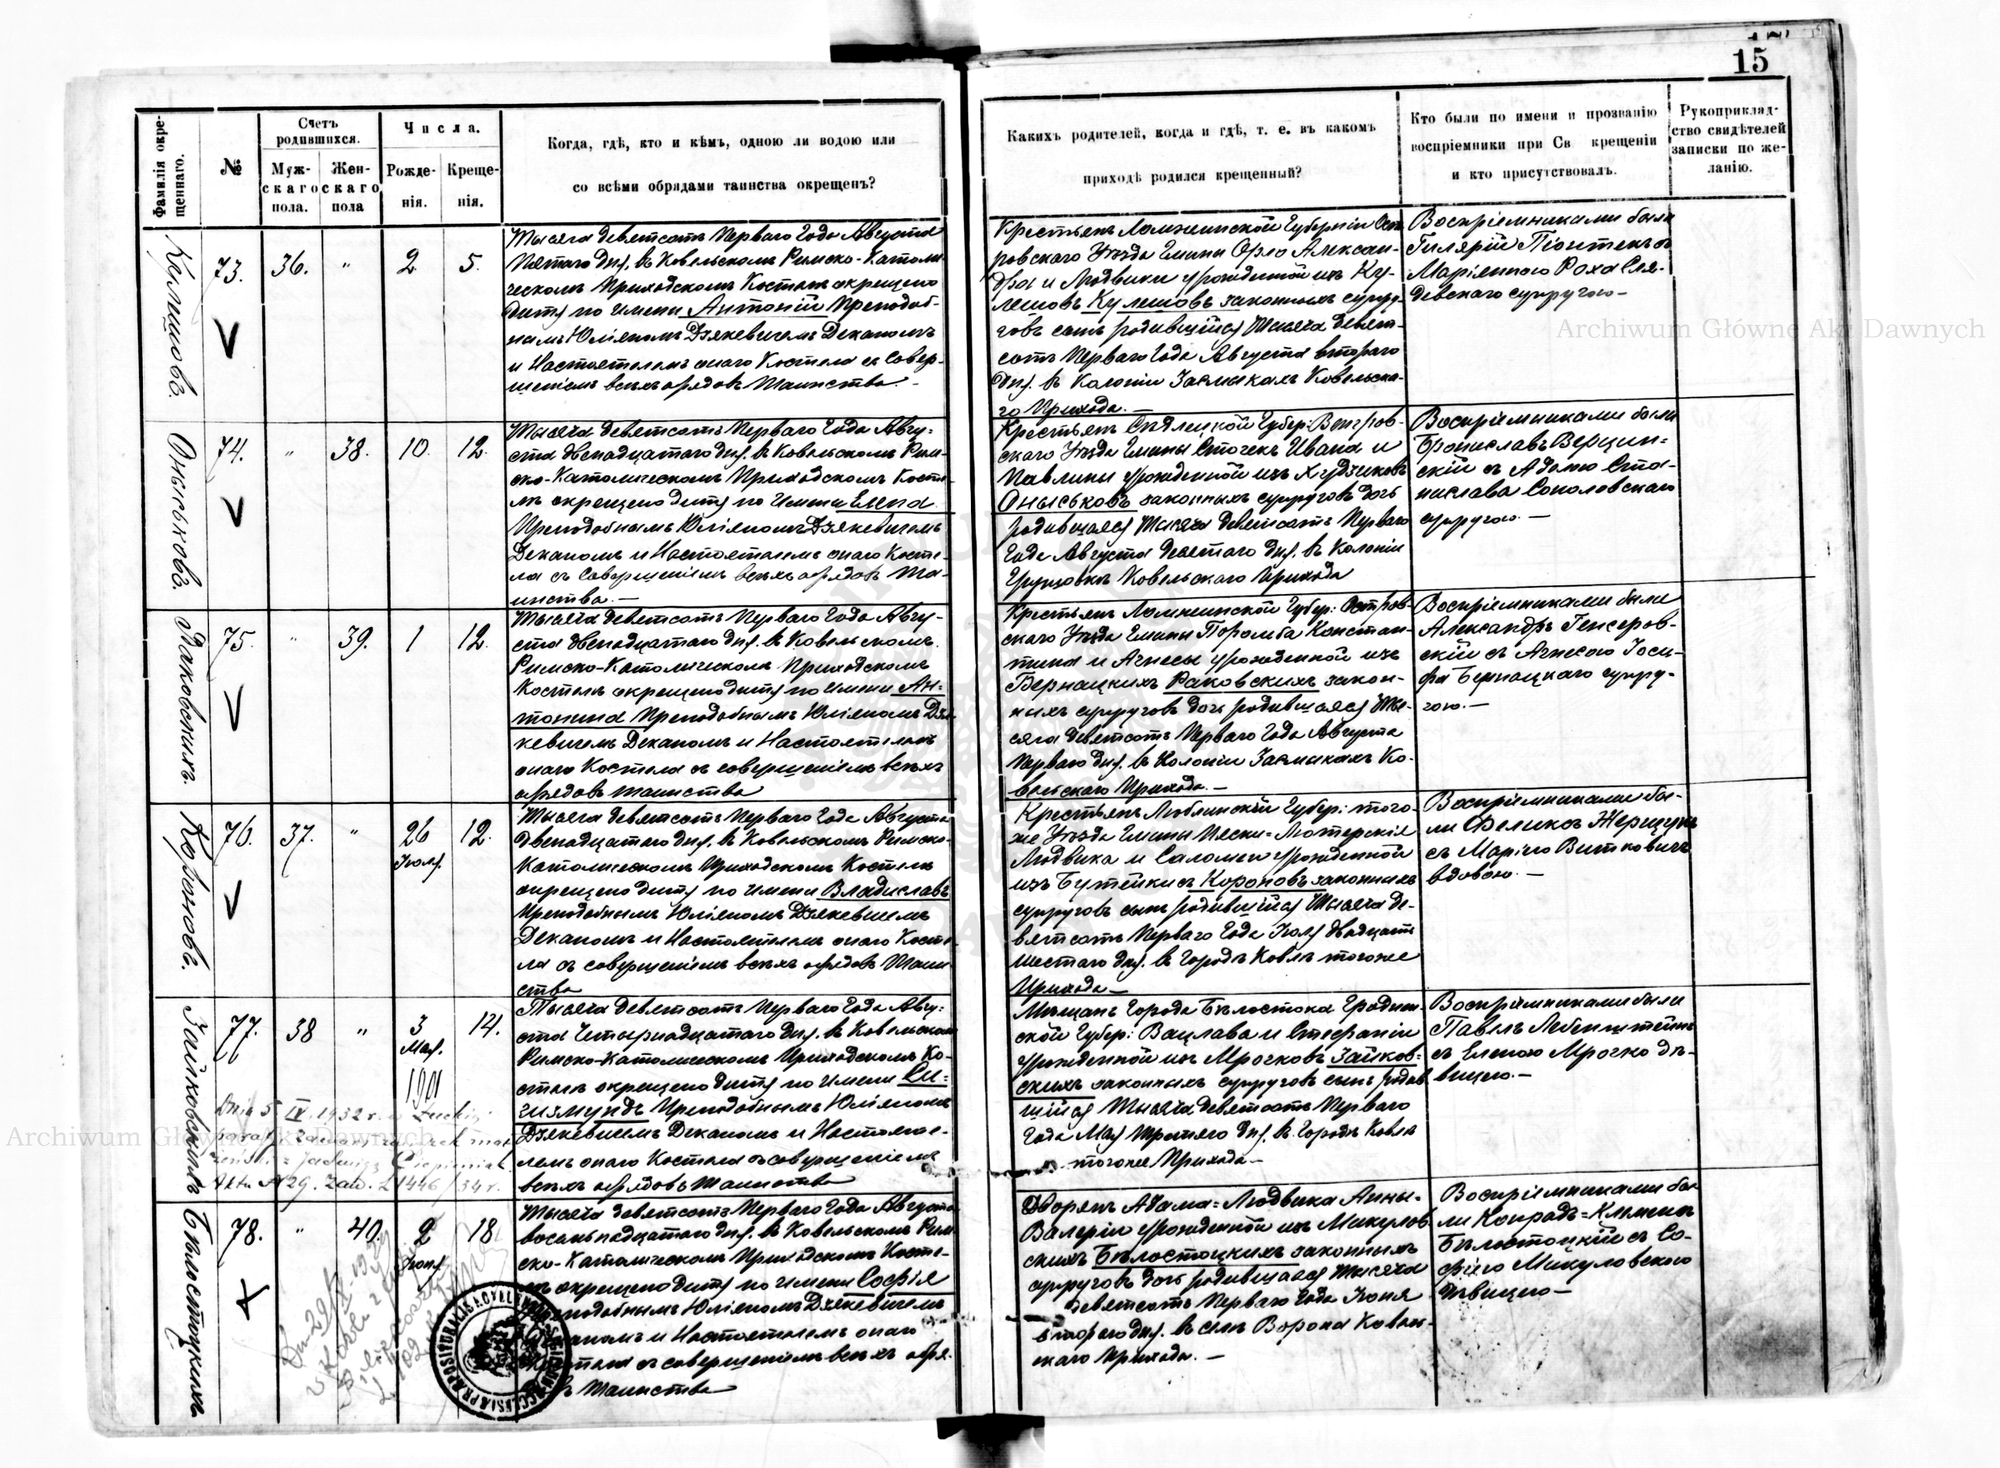 15
Фамилія окре-
щеннаго.
№
Счетъ
родившихся.
Муж-
скаго
пола.
Жен-
скаго
пола
Числа.
Рожде-
нія.
Креще-
нія.
Когда, гдѣ, кто и кѣмъ, одною ли водою или
со всѣми обрядами таинства окрещенъ?
Какихъ родителей, когда и гдѣ, т. е. въ какомъ
приходѣ родился крещенный?
Кто были по имени и прозванію
воспріемники при Св крещеніи
и кто присутствовалъ.
Рукоприклад-
ство свидѣтелей
записки по же-
ланію.
Кулешовъ.
73.
36.
"
2
5.
Тысяча девятсотъ Перваго Года Августа
Пятаго дня. въ Ковельскомъ Римско-Католи
ческомъ Приходскомъ Костелѣ окрещено
дитя по имени Антоній Преподоб-
нымъ Юліяномъ Дзякевичемъ Деканомъ
и Настоятелемъ онаго Костела съ совер-
шеніемъ всѣхъ обрядовъ Таинства. -
Крестьянъ Ломжинской Губерніи Ост
ровскаго Уѣзда Гмины Орло Алексан-
дра и Людвики урожденной изъ Ку-
лешовъ Кулешовъ законныхъ супру-
говъ сынъ родившійся Тысяча девят-
сотъ Перваго Года Августа втораго
дня. въ Колоніи Засмыкахъ Ковельска-
го Прихода. —
Воспріемниками были
Гилярій Піонтекъ съ
Маріянною Роха Сля-
девскаго супругою —
Оныськовъ.
74.
"
38.
10.
12.
Тысяча девятсотъ Перваго Года Авгу-
ста двенадцатаго дня. въ Ковельскомъ Рим-
ско-Католическомъ Приходскомъ Косте-
лѣ окрещено дитя по имени Елена
Преподобнымъ Юліяномъ Дзякевичемъ
Деканомъ и Настоятелемъ онаго Косте-
ла съ совершеніемъ всѣхъ обрядовъ Та-
инства. —
Крестьянъ Сѣдлецкой Губер: Венгров-
скаго Уѣзда Гмины Сточекъ Ивана и
Павлины урожденной изъ Худзиковъ
Оныськовъ законныхъ супруговъ дочь
родившаяся Тысяча девятсотъ Перваго
Года Августа десятаго дня. въ Колоніи
Ковельскаго Прихода
Воспріемниками были
Брониславъ Верцин-
скій съ Адолю Ста-
нислава Соколовскаго
супругою. —
Раковскихъ.
75.
"
39.
1
12.
Тысяча девятсотъ Перваго Года Авгу-
ста двенадцатаго дня. въ Ковельскомъ
Римско-Католическомъ Приходскомъ
Костелѣ окрещено дитя по имени Ан-
тонина Преподобнымъ Юліяномъ Дзя-
кевичемъ Деканомъ и Настоятелемъ
онаго Костела съ совершеніемъ всѣхъ
обрядовъ Таинства
Крестьянъ Ломжинской Губер: Остров-
скаго Уѣзда Гмины Поромба Констан-
тина и Агнесы урожденной изъ
Бернацкихъ Раковскихъ закон-
ныхъ супруговъ дочь родившаяся Ты-
сяча девятсотъ Перваго Года Августа
Перваго дня. въ Колоніи Засмыкахъ Ко-
вельскаго Прихода. —
Воспріемниками были
Александръ Генсеров-
скій съ Агнесою Іоси-
фа Бернацкаго супру-
гою. —
Короновъ.
76.
37.
"
26
Іюля.
12.
Тысяча девятсотъ Перваго Года Августа
Двенадцатаго дня. въ Ковельскомъ Римско-
Католическомъ Приходскомъ Костелѣ
окрещено дитя по имени Владиславъ
Преподобнымъ Юліяномъ Дзякевичемъ
Деканомъ и Настоятелемъ онаго Косте-
ла съ совершеніемъ всѣхъ обрядовъ Таин
ства
Крестьянъ Люблинской Губер: того-
же Уѣзда Гмины Пески=Лютерскіе
Людвика и Саломеи урожденной
изъ Бутейкисъ Короновъ законныхъ
супруговъ сынъ родившійся Тысяча де-
вятсотъ Перваго Года Іюля двадцать
шестаго дня. въ Городѣ Ковлѣ тогоже
Прихода —
Воспріемниками бы-
ли Феликсъ Жерщукъ
съ Марією Виткевичъ
вдовою. —
Зайковскихъ
77.
38
"
3
Мая.
1901
14.
Тысяча девятсотъ Перваго Года Авгу-
ста Четырнадцатаго дня. въ Ковельскомъ
Римско-Католическомъ Приходскомъ Ко-
стелѣ окрещено дитя по имени Си-
гизмундъ Преподобнымъ Юліяномъ
Дзякевичемъ Деканомъ и Настояте-
лемъ онаго Костела съ совершеніемъ
всѣхъ обрядовъ Таинства
Мѣщанъ Города Бѣлостока Гроднен-
ской Губер: Вацлава и Стефаніи
урожденной изъ Мрочковъ Зайков-
скихъ законныхъ супруговъ сынъ родив
шійся Тысяча девятсотъ Перваго
Года Мая Третьяго дня. въ Городѣ Ковлѣ
тогоже Прихода —
Воспріемниками были
Павелъ Лебенштейнъ
съ Еленою Мрочко дѣ-
вицею. —
Dnia 5 IV. 1932 r.
Бѣлостоцкихъ
78.
"
40.
2
Іюня
18
Тысяча девятсотъ Перваго Года Августа
восемнадцатаго дня. въ Ковельскомъ Рим
ско-Католическомъ Приходскомъ Косте-
лѣ окрещено дитя по имени Софія
Преподобнымъ Юліяномъ Дзякевичемъ
Деканомъ и Настоятелемъ онаго
Костела съ совершеніемъ всѣхъ обря-
довъ Таинства
Дворянъ Адама=Людвика Анны-
Валеріи урожденной изъ Микулов
скихъ Бѣлостоцкихъ законныхъ
супруговъ дочь родившаяся Тысяча
девятсотъ Перваго Года Іюня
втораго дня. въ селѣ Ворона Ковель-
скаго Прихода. —
Воспріемниками бы
ли Конрадъ=Клеменсъ
Бѣлостоцкій съ Со-
фією Микуловскою
дѣвицею —
Archiwum Główne Akt Dawnych
Archiwum Główne Akt Dawnych